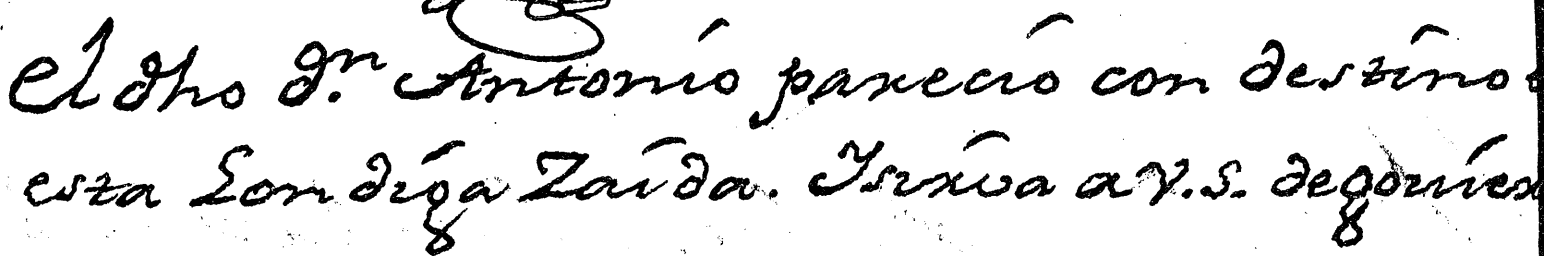 el dho dn. Antonio parecio con destino
esta Londiga Zaida. Y sirva a V. S. de govier